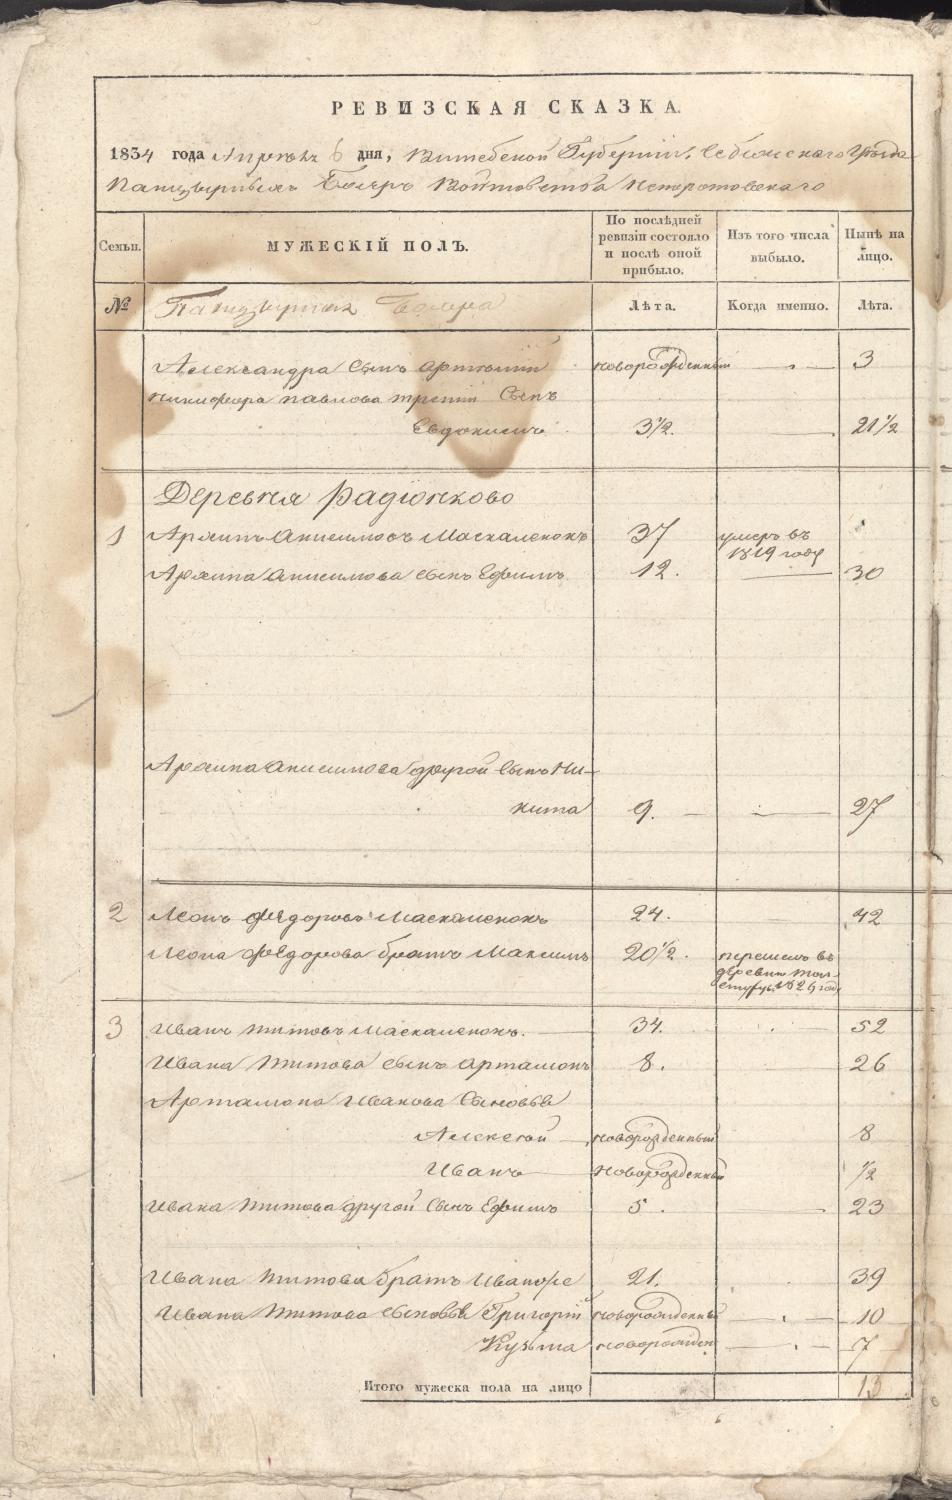 РЕВИЗСКАЯ СКАЗКА.
1834 года Апреля 6 дня, Витебской Губернии, Себежскаго Уезда
Панцырныхъ Бояръ Войтовства Непоротовскаго
Семьи. МУЖЕСКІЙ ПОЛЪ. По послѣдней ревизіи состояло и послѣ оной прибыло. Изъ того числа выбыло. Нынѣ на лицо.
№ Панцырныя Бояра Лѣта. Когда именно. Лѣта.
Александра сынъ Артемій новорожденный 3
Никифора Павлова третій сынъ
Евдокимъ 3 1/2. 21 1/2
Деревня Радионково
1 Архипъ Анисимовъ Маскаленокъ 37 умеръ въ 1819 году
Архипа Анисимова сынъ Ефимъ 12. 30
Архипа Анисимова другой сынъ Ни-
кита 9. 27
2 Леонъ Федоровъ Маскаленокъ 24. 42
Леона Федорова братъ Максимъ 20 1/2. перешелъ въ деревню 1826 год
3 Иванъ Титовъ Маскаленокъ. 34. 52
Ивана Титова сынъ Артамонъ 8. 26
Артамона Иванова сыновья
Алексей новорожденный 8
Иванъ новорожденный 1/2
Ивана Титова другой сынъ Ефимъ 5. 23
Ивана Титова братъ Иванъ же 21. 39
Ивана Титова сыновья Григорій новорожденный 10
Кузьма новорожден 7
Итого мужеска пола на лицо 13